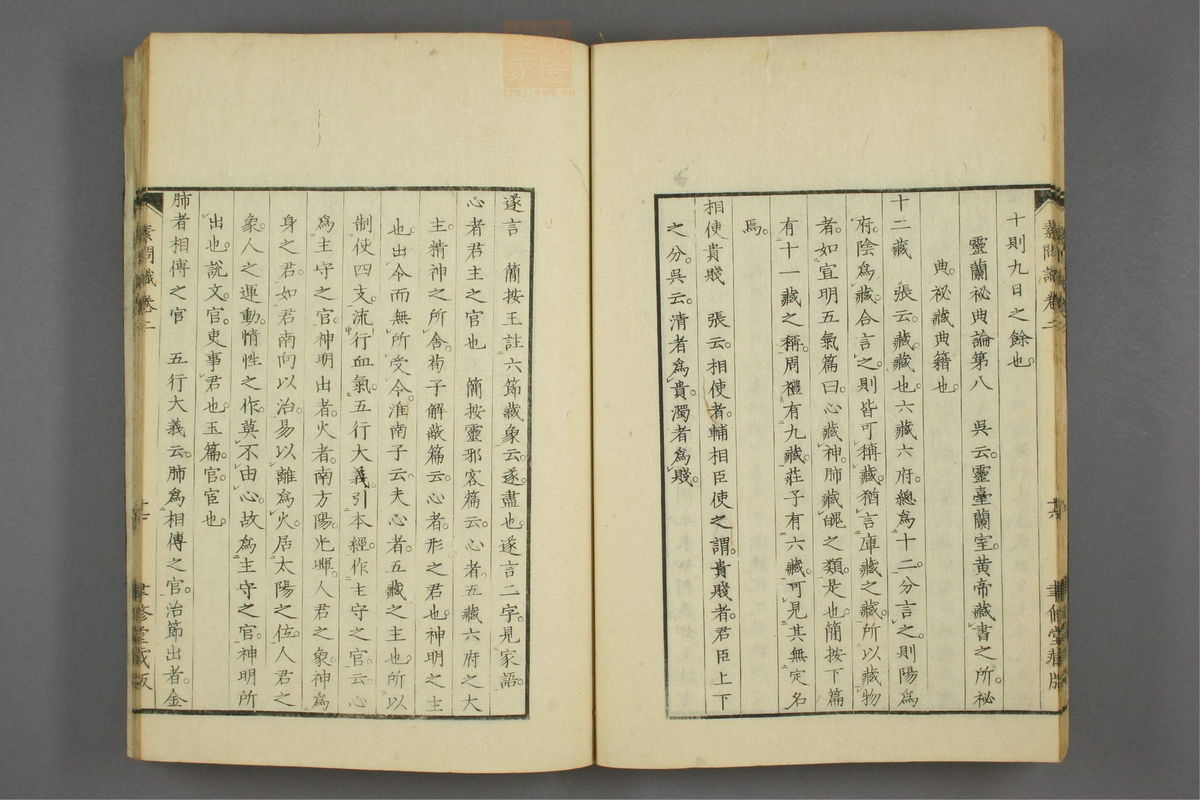 十則九日之餘也。
靈蘭祕典論第八　吳云。靈臺蘭室。黃帝藏書之所。祕
典。祕藏典籍也。
十二藏　張云。藏。藏也。六藏六府。總爲十二。分言之。則陽爲
府。陰爲藏。合言之。則皆可稱藏。猶言庫藏之藏。所以藏物
者。如宣明五氣篇曰。心藏神。肺藏魄之類。是也。簡按下篇
有十一藏之稱。周禮有九藏。莊子有六藏。可見其無定名
焉。
相使貴賤　張云。相使者。輔相臣使之謂。貴賤者。君臣上下
之分。吳云。清者爲貴。濁者爲賤。
素問識卷二
聿修堂藏版
遂言　簡按王註六節藏象云。遂。盡也。遂言二字。見家語。
心者君主之官也　簡按靈邪客篇云。心者。五藏六府之大
主。精神之所舍。荀子解蔽篇云。心者。形之君也。神明之主
也。出令而無所受令。淮南子云。夫心者。五藏之主也。所以
制使四支。流行血氣。五行大義。引本經。作主守之官。云。心
爲主守之官。神明出者。火者。南方陽。光暉。人君之象。神爲
身之君。如君南向以治。易以離爲火。居太陽之位。人君之
象。人之運動。情性之作。莫不由心。故爲主守之官。神明所
出也。說文。官。吏事君也。玉篇。官。宦也。
肺者相傅之官　五行大義云。肺爲相傅之官。治節出者。金
素問識卷二
聿修堂藏版